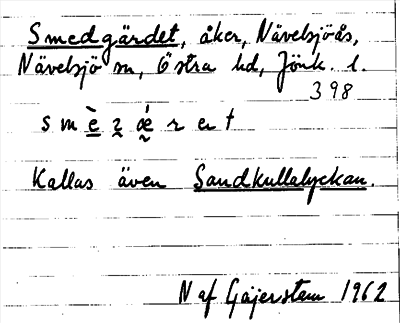 Smedgärdet, åker, Nävelsjöås,
Nävelsjö sn, Östra hd, Jönk. l.
398
s m è̲ z̰ ǽ̰ r e t
Kallas även Sandkullalyckan.
N af Gajerstam 1962